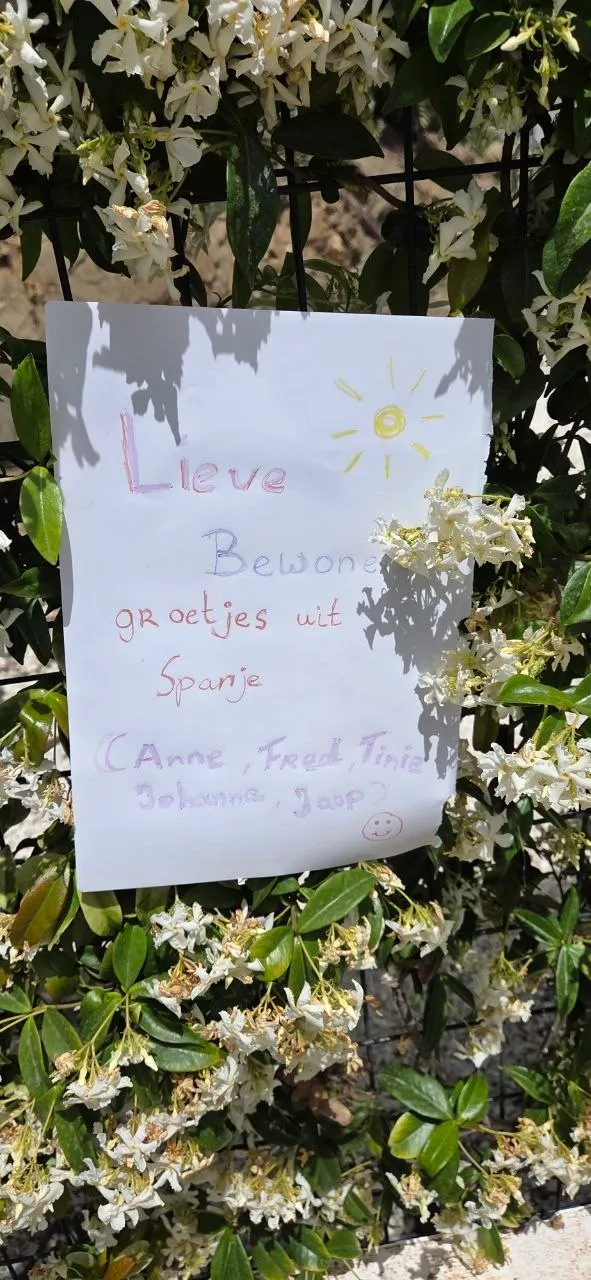 Lieve
Bewone
groetjes uit
Spanje
(Anne, Fred, Tinie
Johanna, Jaap)